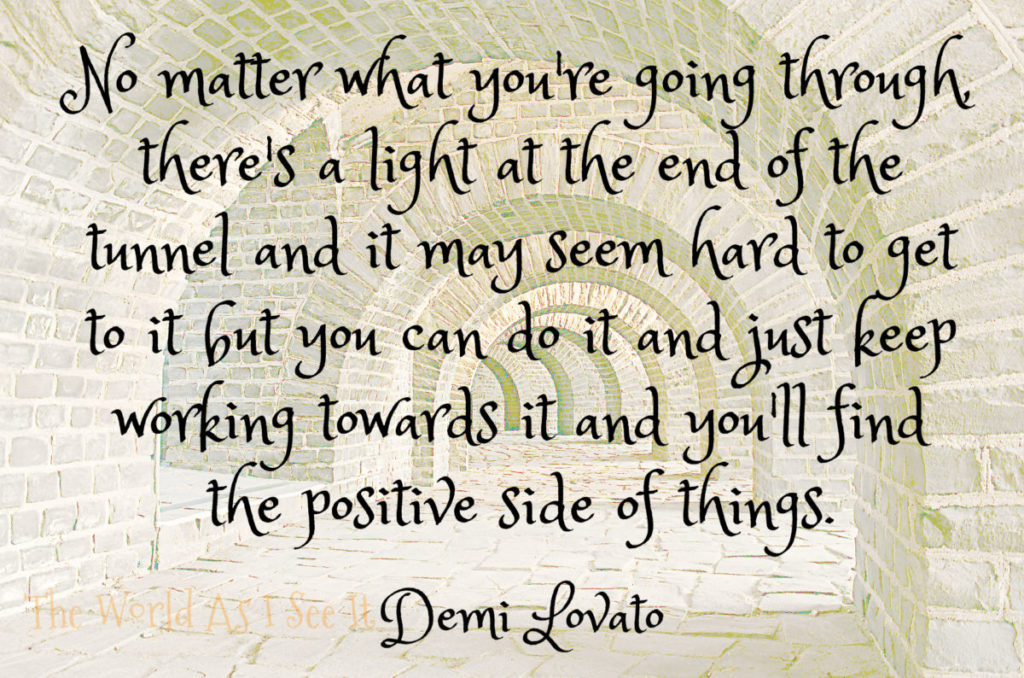 No matter what you're going through,
there's a light at the end of the
tunnel and it may seem hard to get
to it but you can do it and just keep
working towards it and you'll find
the positive side of things.
The World As I See It
Demi Lovato